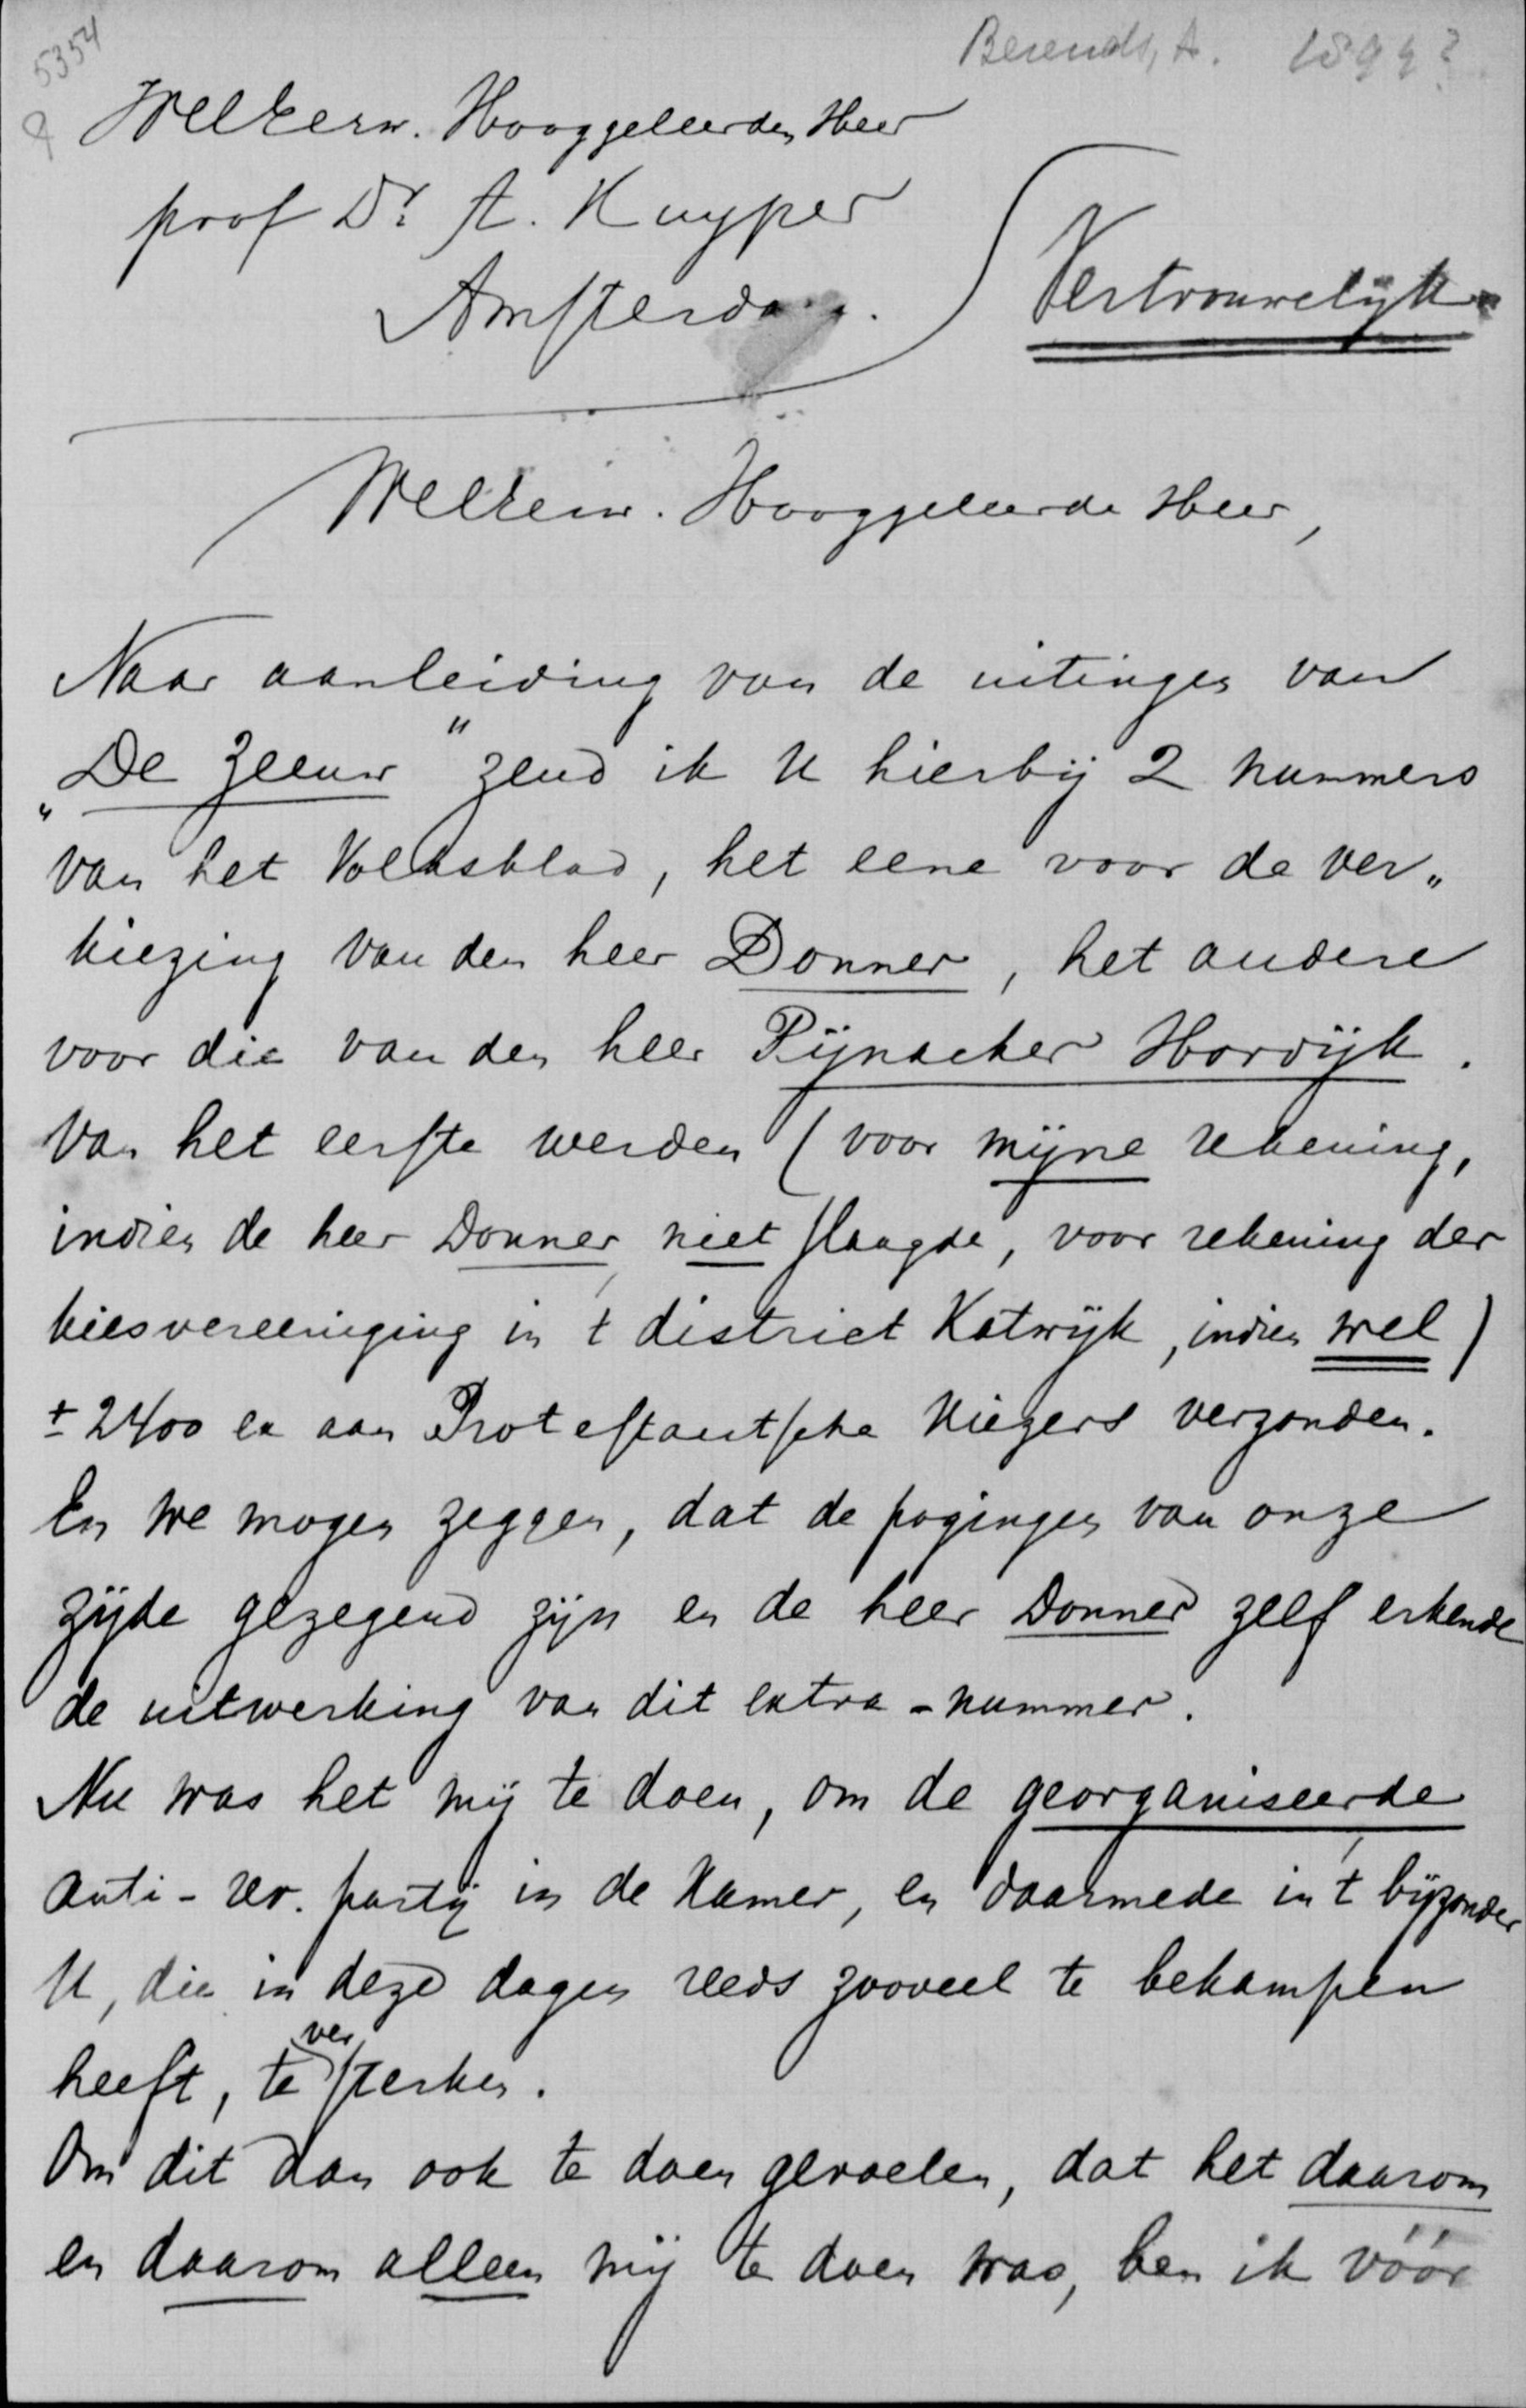 5354
Berends, A. 1894?
WelEerw. Hooggeleerden Heer
prof Dr. A. Kuyper
Amsterdam.
Vertrouwelijk
WelEerw. Hooggeleerde Heer,
Naar aanleiding van de uitingen van
„De Zeeuw" zend ik U hierbij 2 nummers
van het Volksblad, het eene voor de ver„
kiezing van den heer Donner, het andere
voor die van den heer Pijnacker Hordijk.
Van het eerste werden (voor mijne rekening,
indien de heer Donner niet slaagde, voor rekening der
kiesvereeniging in 't district Katwijk, indien wel)
± 2400 ex aan Protestantsche kiezers verzonden.
En we mogen zeggen, dat de pogingen van onze
zijde gezegend zijn en de heer Donner zelf erkende
de uitwerking van dit extra-nummer.
Nu was het mij te doen, om de georganiseerde
anti-rev. partij in de Kamer, en daarmede in 't bijzonder
U, die in deze dagen reeds zooveel te bekampen
heeft, te versterken.
Om dit dan ook te doen gevoelen, dat het daarom
en daarom alleen mij te doen was, ben ik vóór